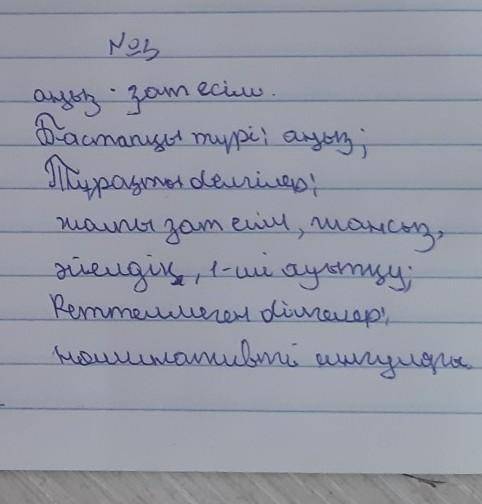 №3
аңыз - зат есім.
Бастапқы түрі: аңыз;
Тұрақты белгілер:
жалпы зат есім, жансыз,
әйелдік, 1-ші ауытқу;
Реттелмеген білгелер:
номинативті сингуляры.